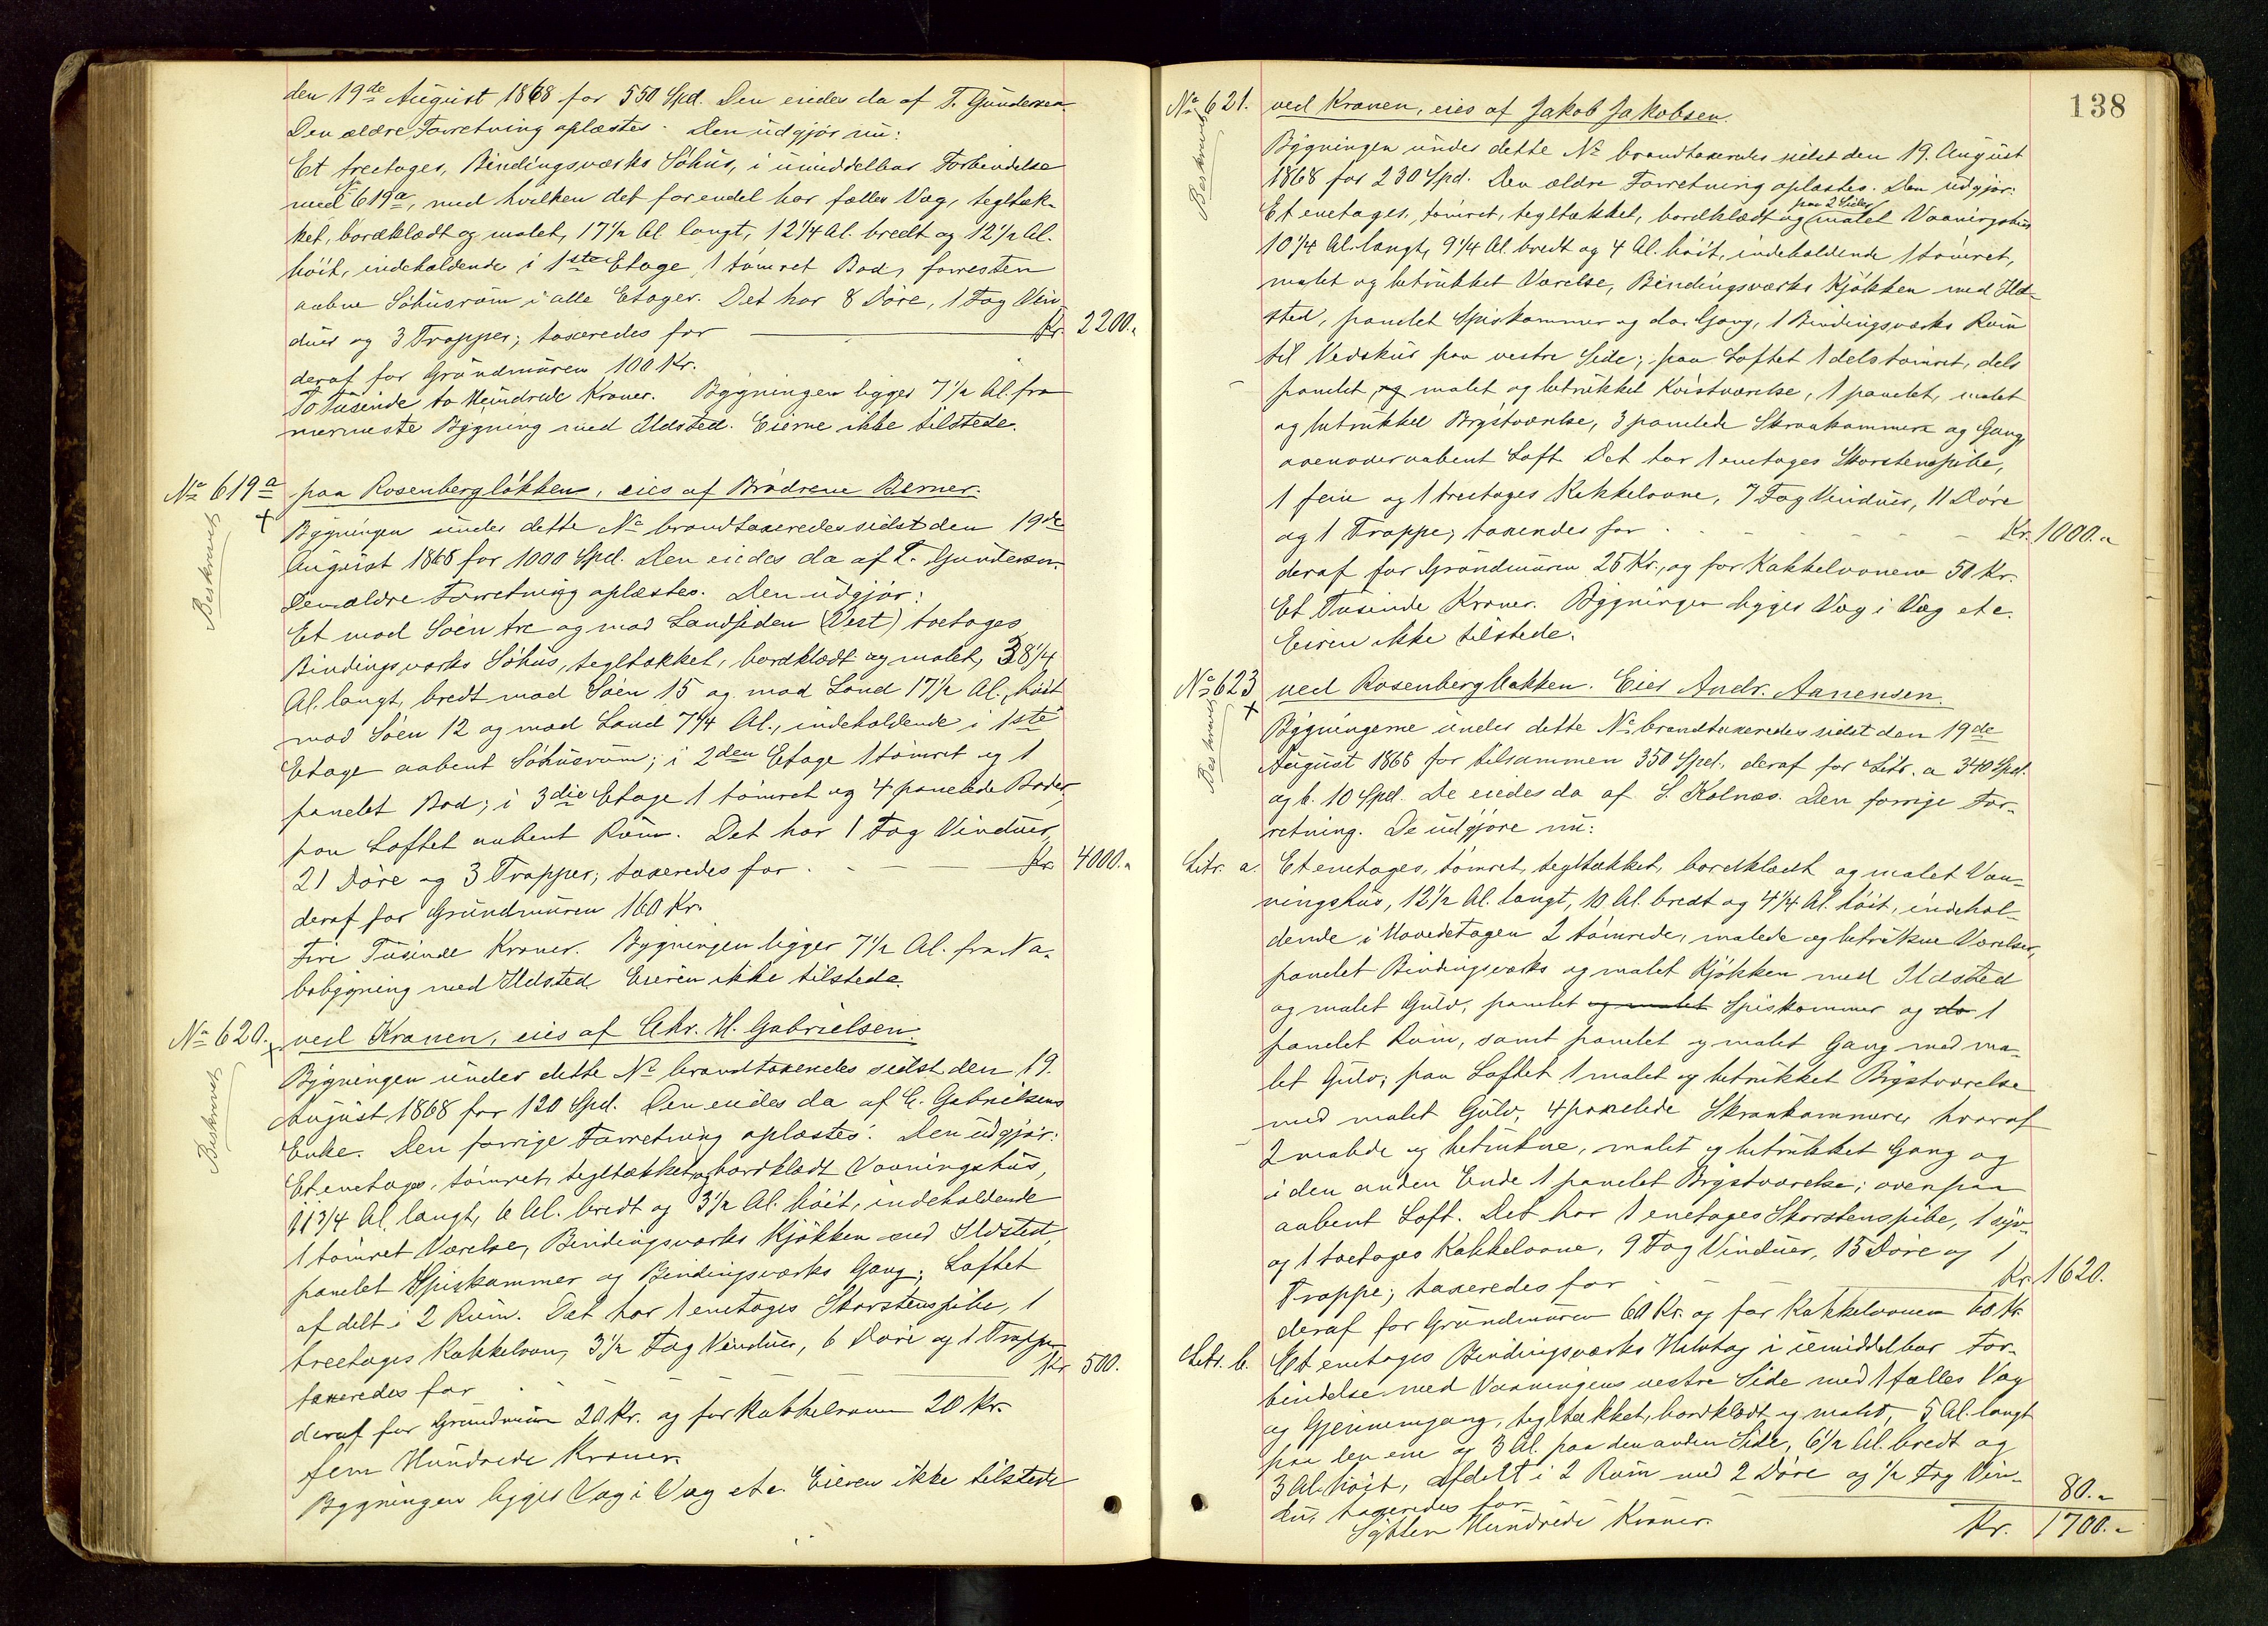 den 19de August 1868 for 550 Spd. Den eiedes da af T. Gundersen
Den ældre Forretning oplæstes. Den udgjør nu:
Et treetages, Bindingsværks Søhus, i umiddelbar Forbindelse
med No 619a, med hvilken det forendel har fælles Væg, tegltæk-
ket, bordklædt og malet, 17 1/2 Al. langt, 12 1/4 Al. bredt og 12 1/2 Al.
høit, indeholdende i 1ste Etage 1 tømret Bod, forresten
aabne Søhusrum i alle Etager. Det har 8 Døre, 1 Fag Vin-
duer og 3 Trapper; taxeredes for Kr. 2200.-
deraf for Grundmuren 100 Kr.
To Tusinde to Hundrede Kroner. Bygningen ligger 7 1/2 Al. fra
nærmeste Bygning med Ildsted. Eierne ikke tilstede.
No 619a paa Rosenbergløkken, eies af Brødrene Berner.
Beskrevet
Bygningen under dette No brandtaxeredes sidst den 19de
August 1868 for 1000 Spd. Den eiedes da af T. Gundersen.
Den ældre Forretning oplæstes. Den udgjør:
Et mod Søen tre og mod Landsiden (Vest) toetages
Bindingsværks Søhus, tegltækket, bordklædt og malet, 38 1/4
Al. langt, bredt mod Søen 15 og mod Land 17 1/2 Al., høit
mod Søen 12 og mod Land 7 1/4 Al., indeholdende i 1ste
Etage aabent Søhusrum; i 2den Etage 1 tømret og 1
panelet Bod; i 3die Etage 1 tømret og 4 panelede Boder,
paa Loftet aabent Rum. Det har 1 Fag Vinduer,
21 Døre og 3 Trapper; taxeredes for Kr. 4000.-
deraf for Grundmuren 160 Kr.
Fire Tusinde Kroner. Bygningen ligger 7 1/2 Al. fra Na-
bobygning med Ildsted. Eieren ikke tilstede.
No 620. ved Kranen, eies af Chr. H. Gabrielsen.
Beskrevet
Bygningen under dette No brandtaxeredes sidst den 19.
August 1868 for 120 Spd. Den eiedes da af G. Gabrielsens
Enke. Den forrige Forretning oplæstes. Den udgjør:
Et enetages, tømret, tegltækket og bordklædt Vaaningshus,
11 3/4 Al. langt, 6 Al. bredt og 3 1/2 Al. høit, indeholdende
1 tømret Værelse, Bindingsværks Kjøkken med Ildsted,
panelet Spiskammer og Bindingsværks Gang; Loftet
afdelt i 2 Rum. Det har 1 enetages Skorstenspibe, 1
treetages Kakkelovn, 3 1/2 Fag Vinduer, 6 Døre og 1 Trappe
taxeredes for Kr. 500.
deraf for Grundmuren 20 Kr. og for Kakkelovnen 20 Kr.
Fem Hundrede Kroner.
Bygningen ligger Væg i Væg etc. Eieren ikke tilstede
138
No 621. ved Kranen, eies af Jakob Jakobsen.
Beskrevet
Bygningen under dette No brandtaxeredes sidst den 19. August
1868 for 230 Spd. Den ældre Forretning oplæstes. Den udgjør:
Et enetages, tømret, tegltækket, bordklædt og paa 2 Sider malet Vaaningshus
10 1/4 Al. langt, 9 1/4 Al. bredt og 4 Al. høit, indeholdende 1 tømret,
malet og betrukket Værelse, Bindingsværks Kjøkken med Ild-
sted, panelet Spiskammer og do. Gang, 1 Bindingsværks Rum
til Vedskur paa vestre Side; paa Loftet 1 dels tømret, dels
panelet, og malet og betrukket Kvistværelse, 1 panelet, malet
og betrukket Brystværelse, 3 panelede Skraakammere og Gang
ovenover aabent Loft. Det har 1 enetages Skorstenspibe,
1 fem og 1 treetages Kakkelovne, 7 Fag Vinduer, 11 Døre
og 1 Trappe; taxeredes for Kr. 1000.-
deraf for Grundmuren 25 Kr., og for Kakkelovnene 50 Kr.
Et Tusinde Kroner. Bygningen ligger Væg i Væg etc.
Eieren ikke tilstede.
No 623 ved Rosenbergbakken. Eier Andr. Aanensen.
Beskrevet
Bygningerne under dette No brandtaxeredes sidst den 19de
August 1868 for tilsammen 350 Spd., deraf for Litr. a 340 Spd.
og b. 10 Spd. De eiedes da af S. Kolnæs. Den forrige For-
retning. De udgjøre nu:
Litr. a. Et enetages, tømret, tegltækket, bordklædt og malet Vaa-
ningshus, 12 1/2 Al. langt, 10 Al. bredt og 4 1/4 Al. høit, indehol-
dende i Hovedetagen 2 tømrede, malede og betrukne Værelser,
panelet Bindingsværks og malet Kjøkken med Ildsted
og malet Gulv, panelet og malet Spiskammer og do 1
panelet Rum, samt panelet og malet Gang med ma-
let Gulv; paa Loftet 1 malet og betrukket Brystværelse
med malet Gulv, 4 panelede Skraakammere hvoraf
2 malede og betrukne, malet og betrukket Gang og
i den anden Ende 1 panelet Brystværelse; ovenpaa
aabent Loft. Det har 1 enetages Skorstenspibe, 1 syv-
og 1 toetages Kakkelovne, 9 Fag Vinduer, 15 Døre og 1
Trappe; taxeredes for Kr. 1620.
deraf for Grundmuren 60 Kr. og for Kakkelovnene 60 Kr.
Litr. b. Et enetages Bindingsværks Halvtag i umiddelbar For-
bindelse med Vaaningens vestre Side med 1 fælles Væg
og Gjennemgang, tegltækket, bordklædt og malet, 5 Al. langt
paa den ene og 3 Al. paa den anden Side, 6 1/2 Al. bredt og
3 Al. høit, afdelt i 2 Rum med 2 Døre og 1/2 Fag Vin-
du, taxeredes for 80.-
Sytten Hundrede Kroner. Kr. 1700.-